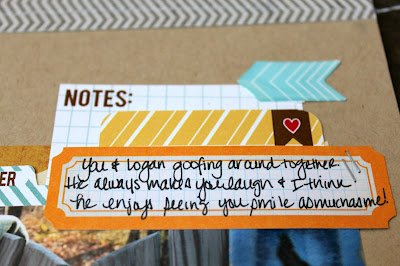 NOTES:
ER
You & Logan goofing around together!!
He always makes you laugh & I think
he enjoys seeing you smile as much as me!